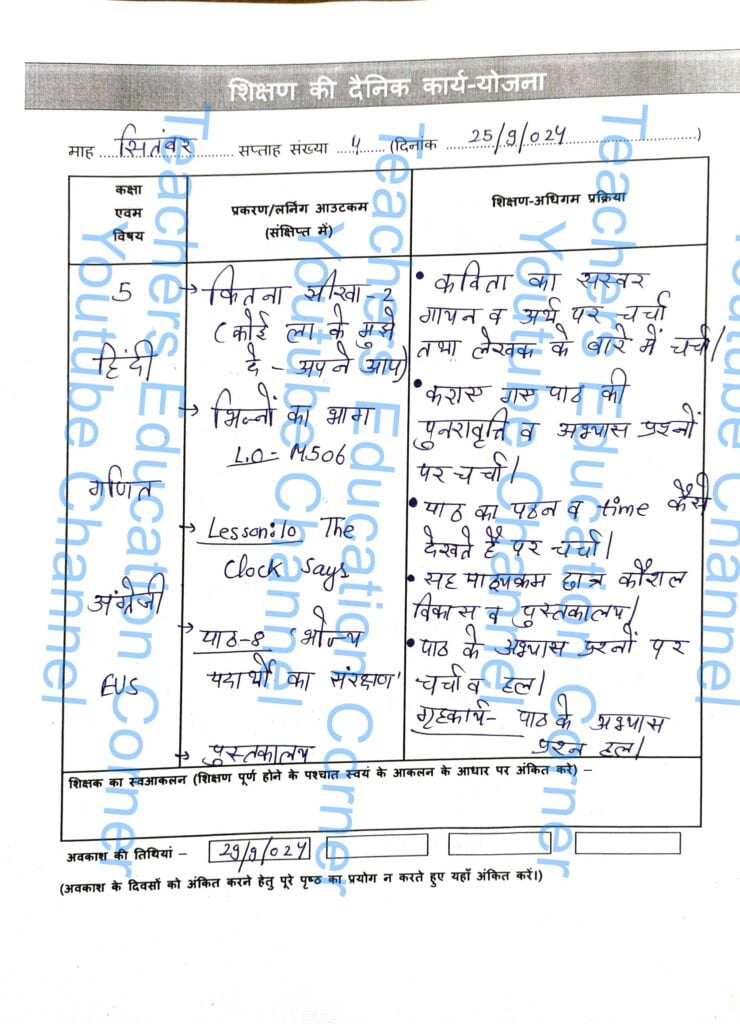 शिक्षण की दैनिक कार्य-योजना
माह सितंबर सप्ताह संख्या 4 (दिनांक 25/9/024)
कक्षा
एवम
विषय
प्रकरण/लर्निग आउटकम
(संक्षिप्त में)
शिक्षण-अधिगम प्रक्रिया
5
हिंदी
गणित
अंग्रेजी
EVS
→ कितना सीखा-2
(कोई ला के मुझे
दे - अपने आप)
→ भिन्नों का भाग
L.O- M506
→ Lesson:10 The
Clock Says
पाठ-8 'भोज्य
पदार्थों का संरक्षण'
→ पुस्तकालय
• कविता का सस्वर
गायन व अर्थ पर चर्चा
तथा लेखक के बारे में चर्चा।
• कराए गए पाठ की
पुनरावृत्ति व अभ्यास प्रश्नों
पर चर्चा।
• पाठ का पठन व time कैसे
देखते हैं पर चर्चा।
• सह पाठ्यक्रम छात्र कौशल
विकास व पुस्तकालय।
• पाठ के अभ्यास प्रश्नों पर
चर्चा व हल।
गृहकार्य- पाठ के अभ्यास
प्रश्न हल।
शिक्षक का स्वआकलन (शिक्षण पूर्ण होने के पश्चात स्वयं के आकलन के आधार पर अंकित करे) –
अवकाश की तिथियां – 29/9/024
(अवकाश के दिवसों को अंकित करने हेतु पूरे पृष्ठ का प्रयोग न करते हुए यहाँ अंकित करें।)
Teachers Education Corner
Youtube Channel
Teachers Education Corner
Youtube Channel
Teachers Education Corner
Youtube Channel
Youtube Channel